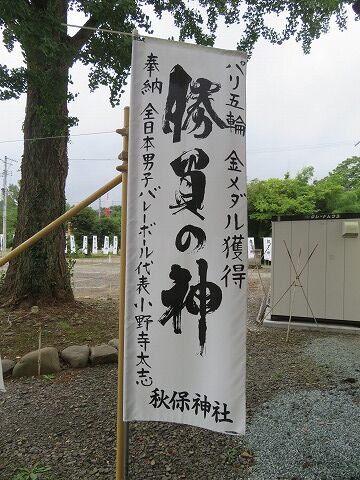 パリ五輪 金メダル獲得
勝負の神
奉納 全日本男子バレーボール代表 小野寺太志
秋保神社